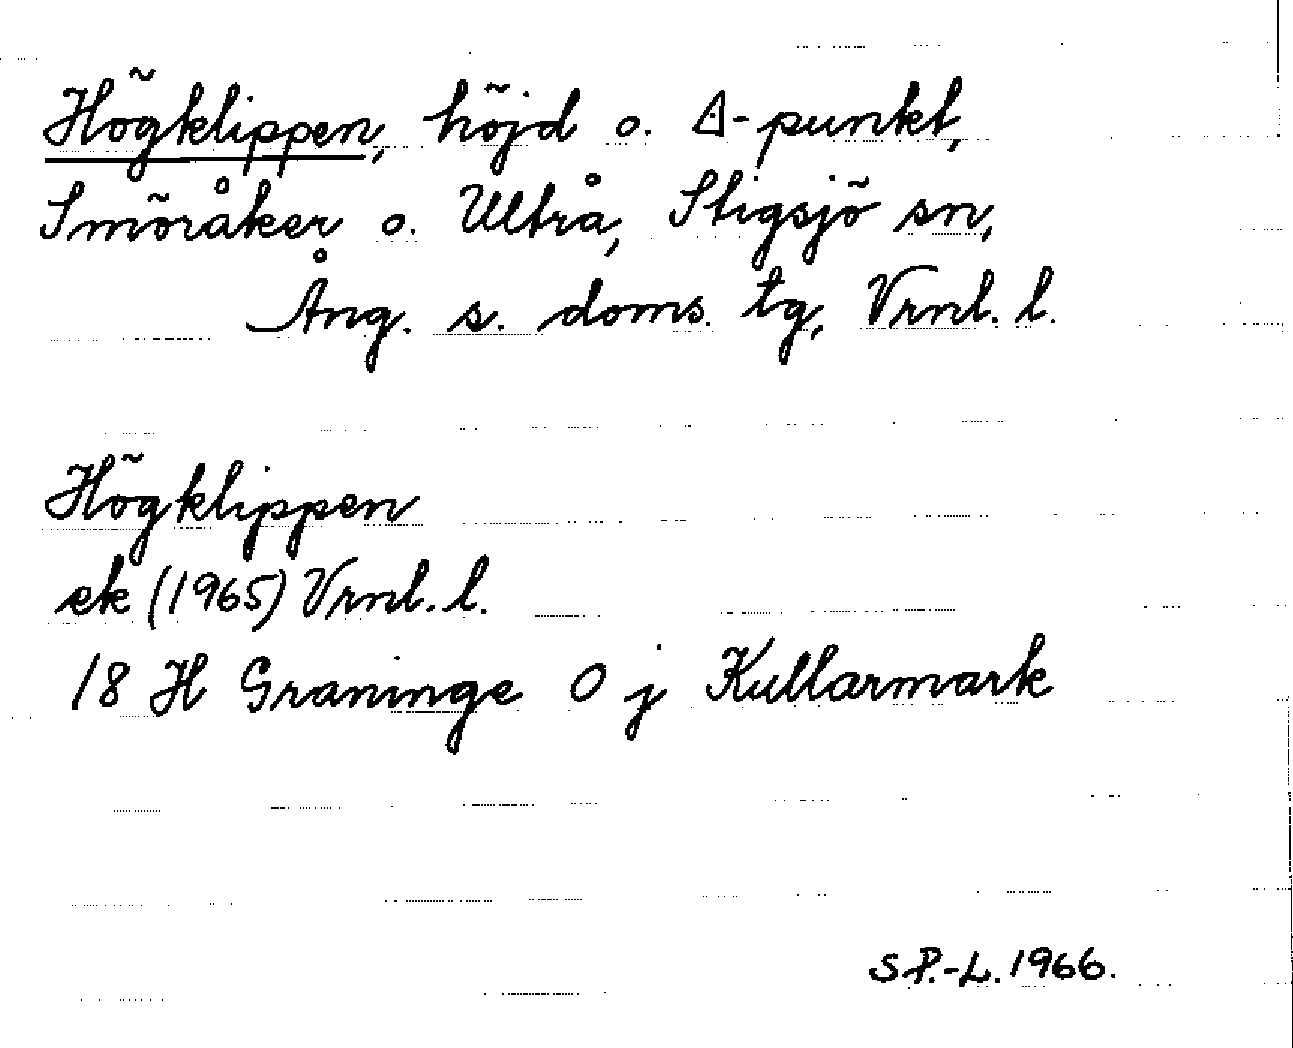 Högklippen, höjd o. ∆-punkt,
Smöråker o. Ultrå, Stigsjö sn,
Ång. s. doms. tg, Vrnl. l.
Högklippen
ek (1965) Vrnl. l.
18 H Graninge O j Kullarmark
S P.-L. 1966.